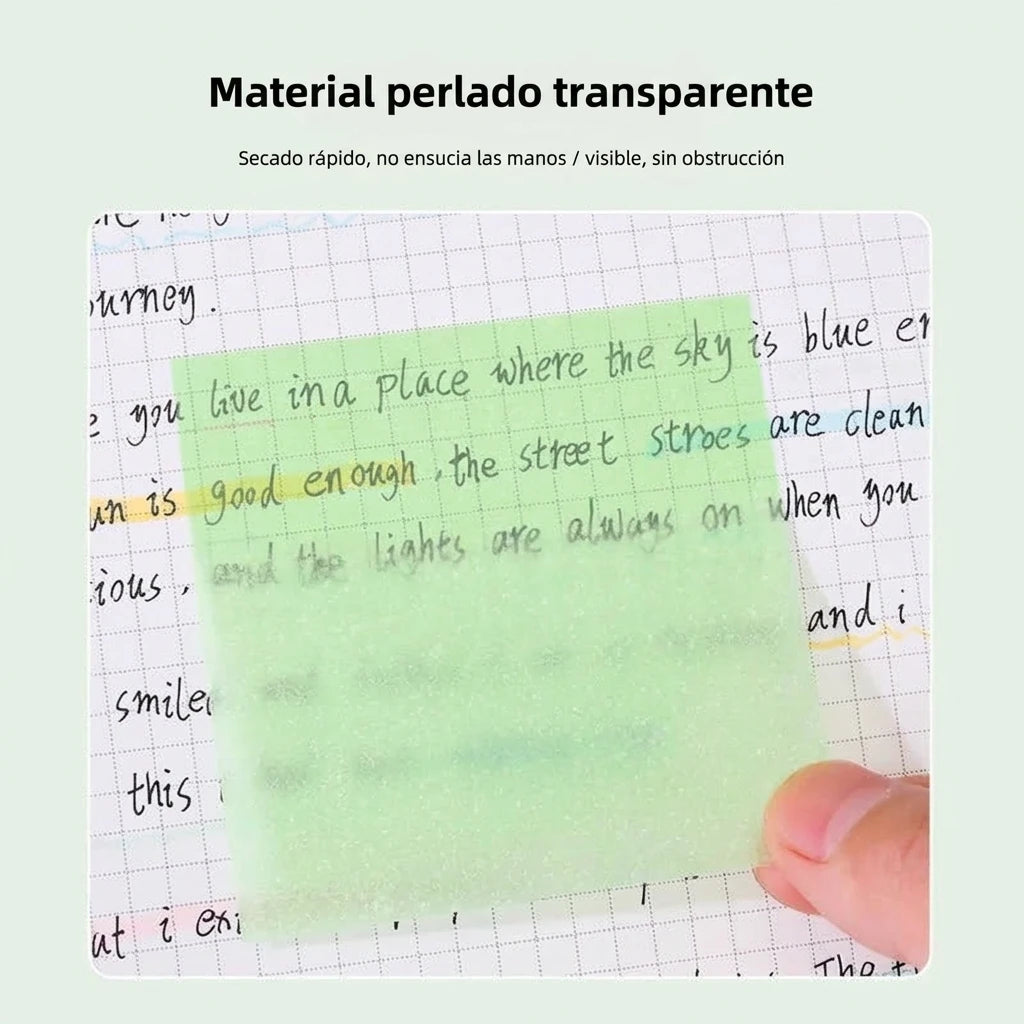 Material perlado transparente
Secado rápido, no ensucia las manos / visible, sin obstrucción
urney.
you live in a place where the sky is blue
un is good enough, the street stroes are clean
ious, and the lights are always on when you
and i
smile
this
at i
The